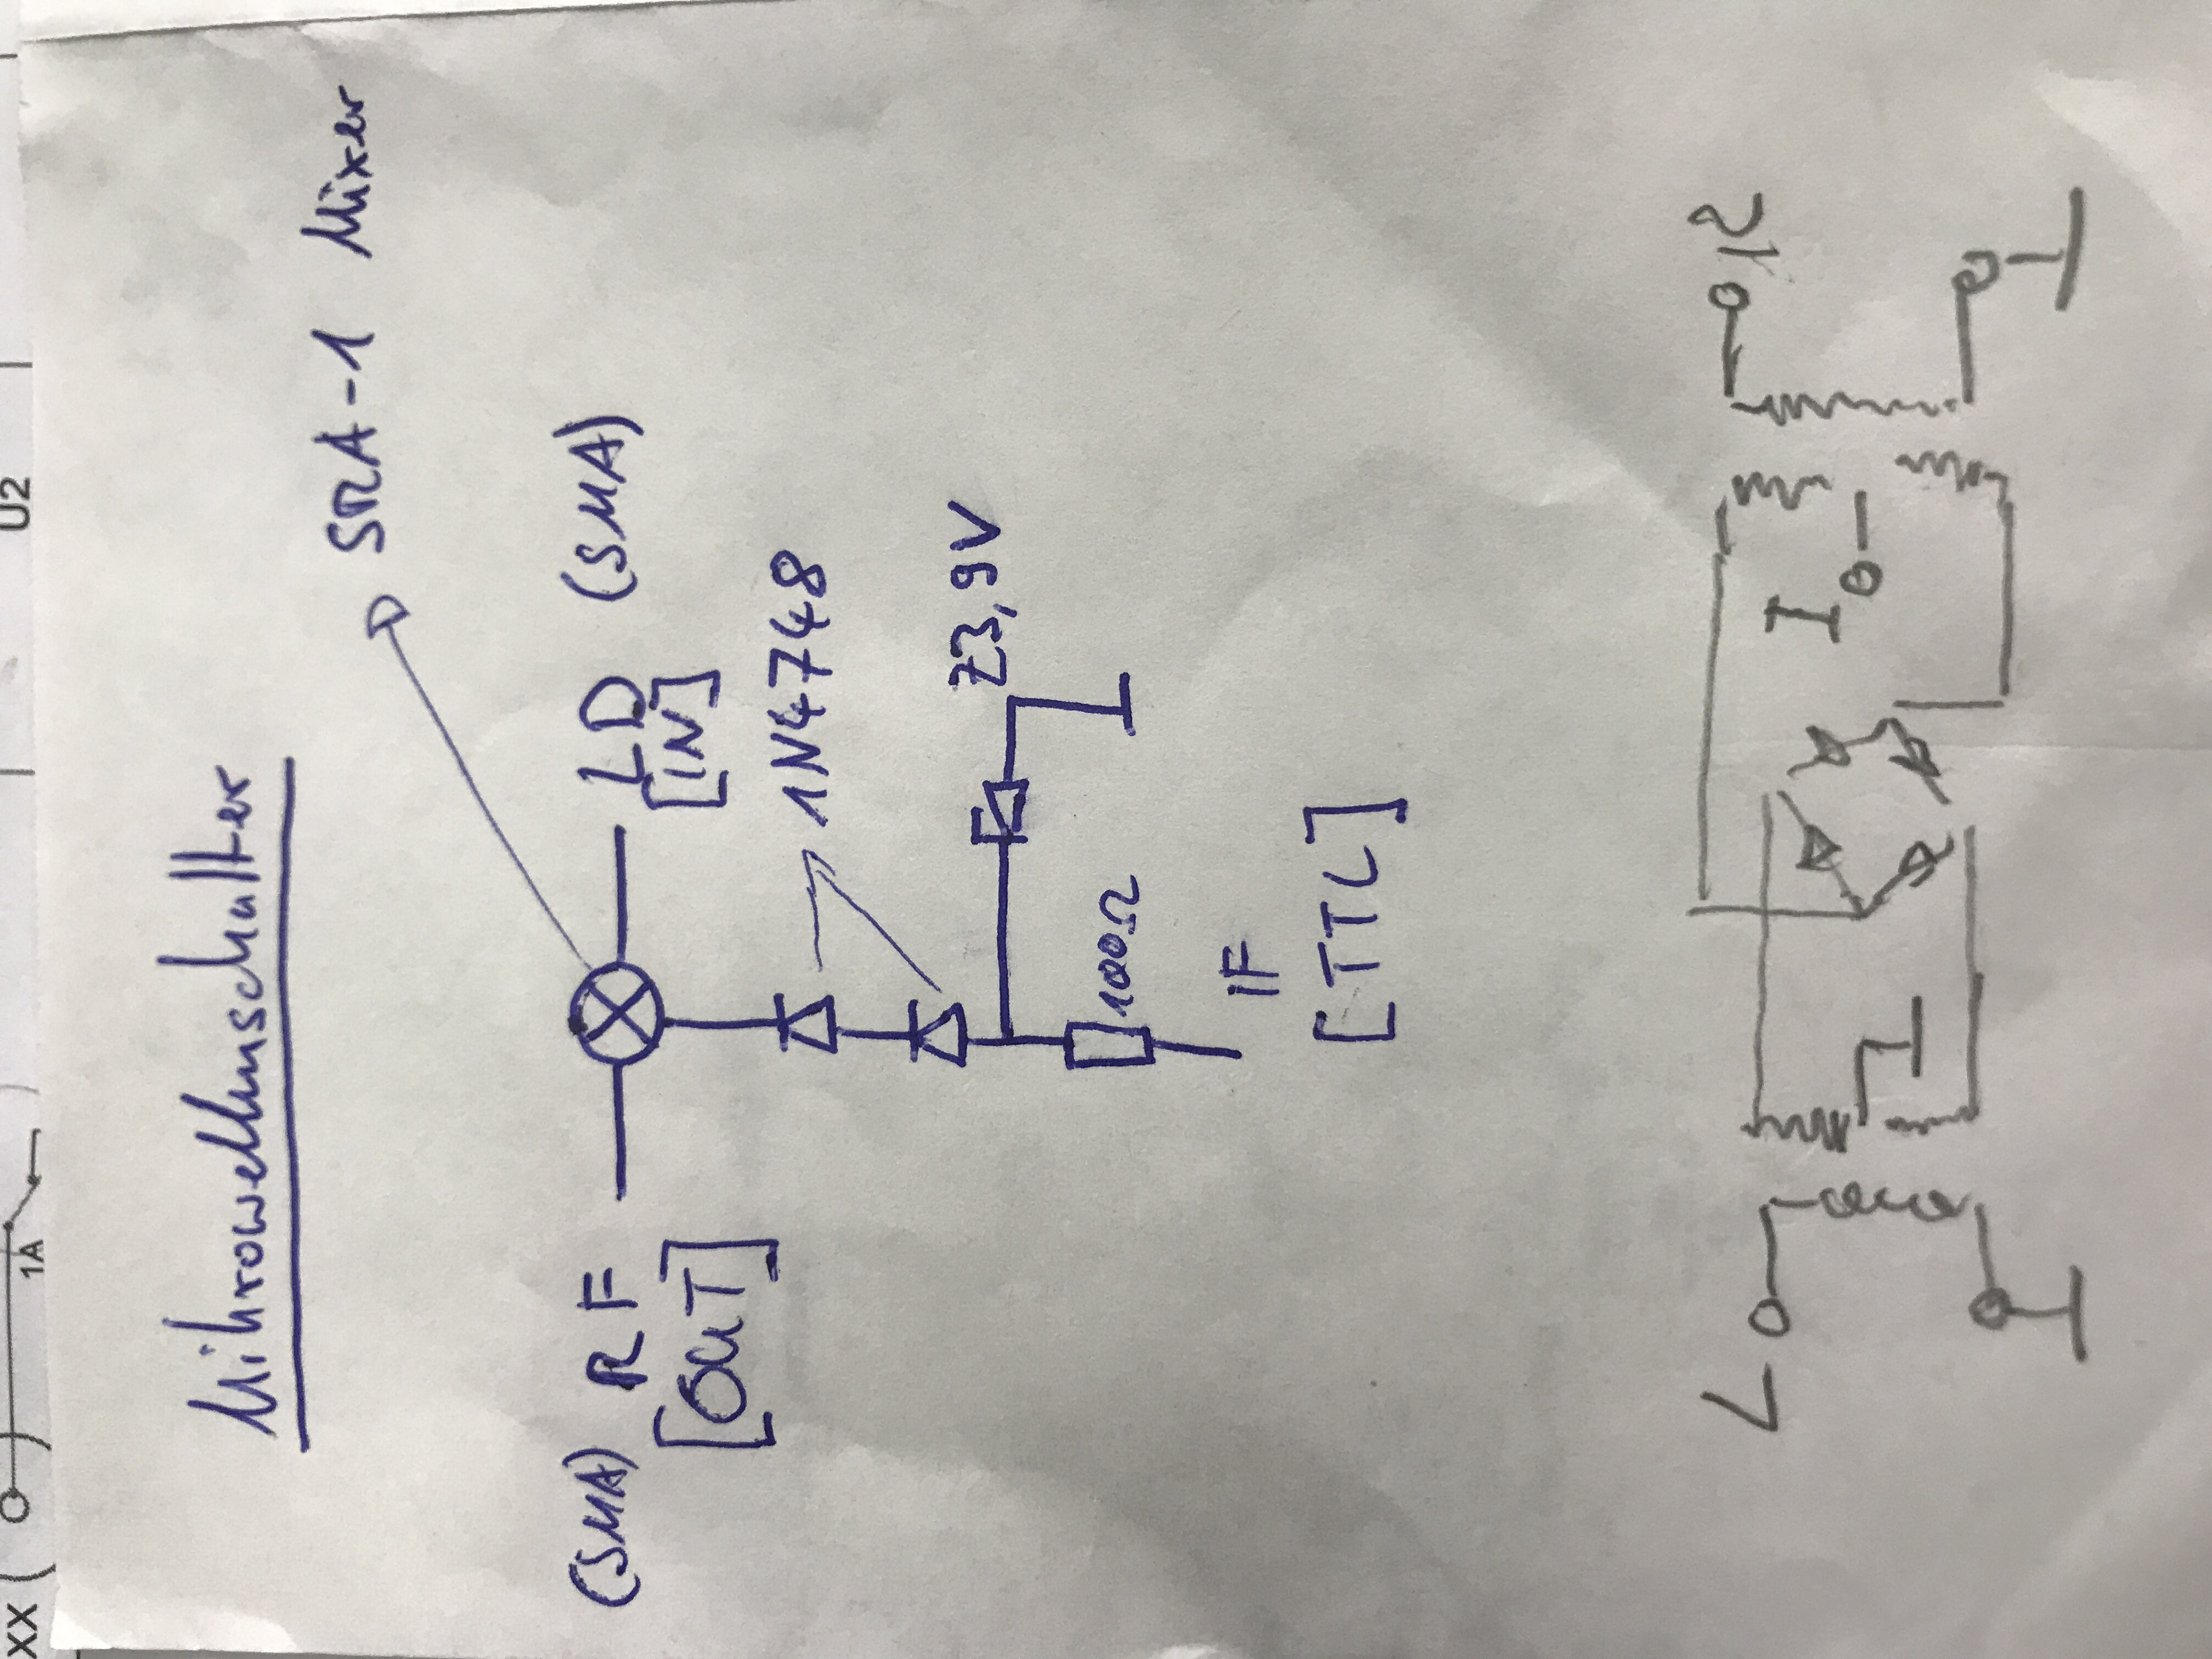 Mikrowellenschalter
SRA-1 Mixer
(SMA) RF
[OUT]
LO (SMA)
[IN]
1N4748
Z3,9V
100Ω
IF
[TTL]
L
I
R
XX
1A
U2